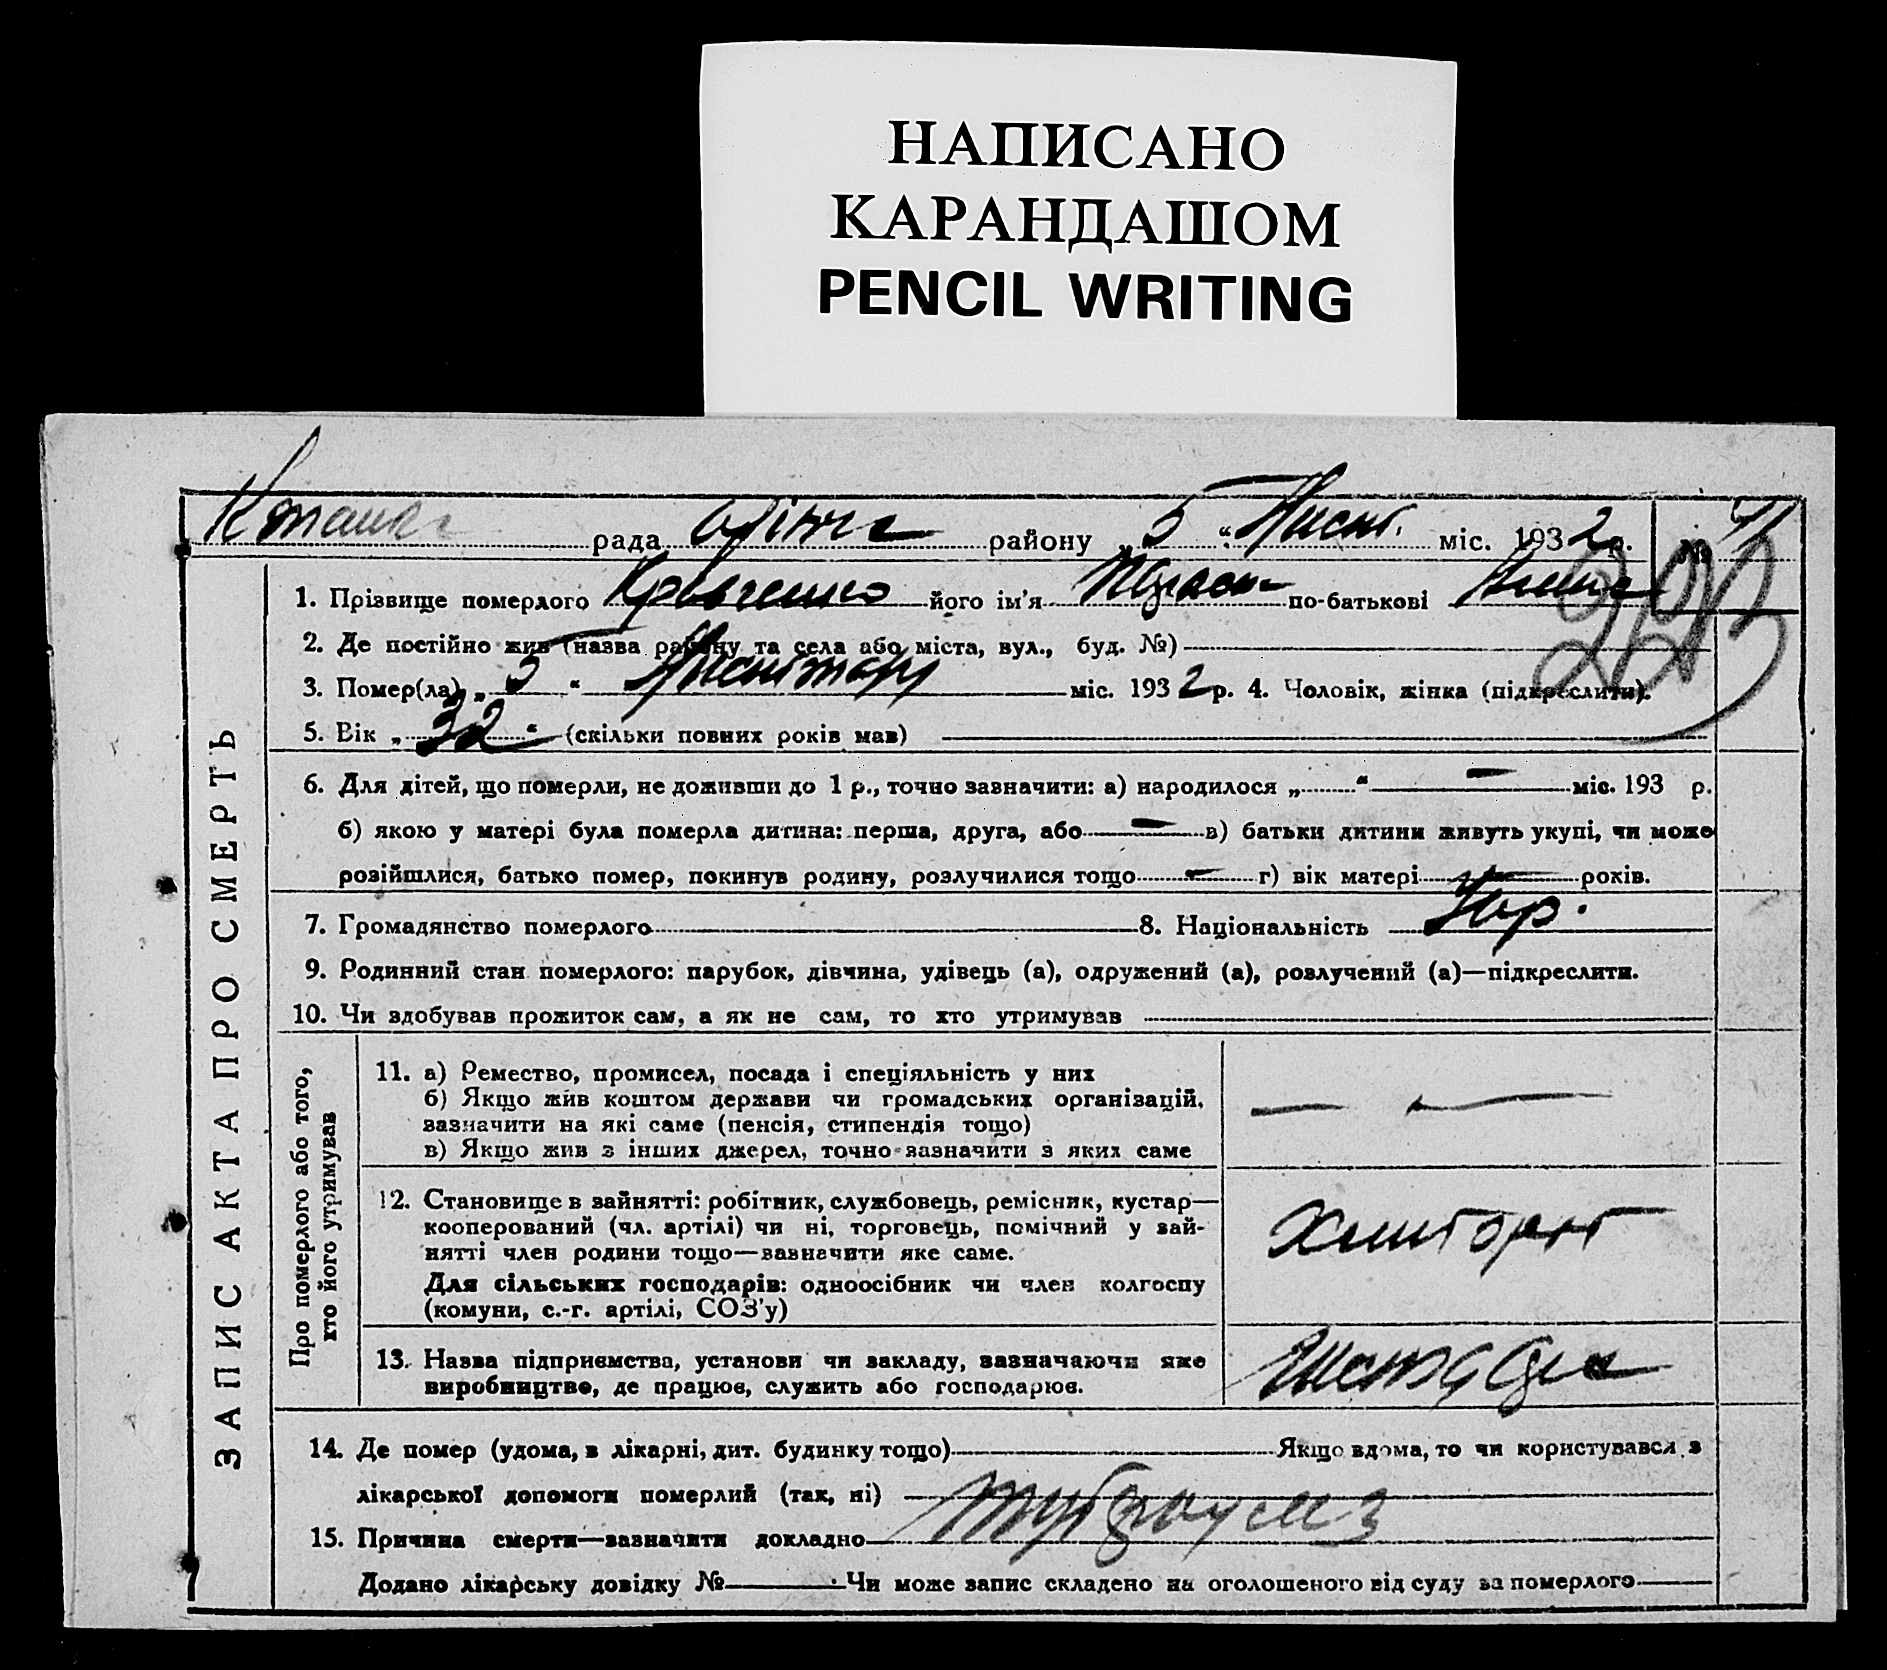 НАПИСАНО
КАРАНДАШОМ
PENCIL WRITING
рада району „ 5 “ міс. 1932 р. № 71
1. Прізвище померлого його ім'я по-батькові
2. Де постійно жив (назва району та села або міста, вул., буд. №)
3. Помер(ла) „ 5 “ міс. 1932 р. 4. Чоловік, жінка (підкреслити).
5. Вік „ 32 “ (скільки повних років мав)
6. Для дітей, що померли, не доживши до 1 р., точно зазначити: а) народилося „ “ — міс. 193 р.
б) якою у матері була померла дитина: перша, друга, або — в) батьки дитини живуть укупі, чи може
розійшлися, батько помер, покинув родину, розлучилися тощо — г) вік матері — років.
7. Громадянство померлого 8. Національність Укр.
9. Родинний стан померлого: парубок, дівчина, удівець (а), одружений (а), розлучений (а)—підкреслити.
10. Чи здобував прожиток сам, а як не сам, то хто утримував
ЗАПИС АКТА ПРО СМЕРТЬ
Про померлого або того,
хто його утримував
11. а) Ремество, промисел, посада і спеціяльність у них
б) Якщо жив коштом держави чи громадських організацій,
зазначити на які саме (пенсія, стипендія тощо)
в) Якщо жив з інших джерел, точно зазначити з яких саме
— —
12. Становище в зайнятті: робітник, службовець, ремісник, кустар—
кооперований (чл. артілі) чи ні, торговець, помічний у зай-
нятті член родини тощо—зазначити яке саме.
Для сільських господарів: одноосібник чи член колгоспу
(комуни, с.-г. артілі, СОЗ'у)
13. Назва підприємства, установи чи закладу, зазначаючи яке
виробництво, де працює, служить або господарює.
14. Де помер (удома, в лікарні, дит. будинку тощо) Якщо вдома, то чи користувався з
лікарської допомоги померлий (так, ні)
15. Причина смерти—зазначити докладно
Додано лікарську довідку № Чи може запис складено на оголошеного від суду за померлого